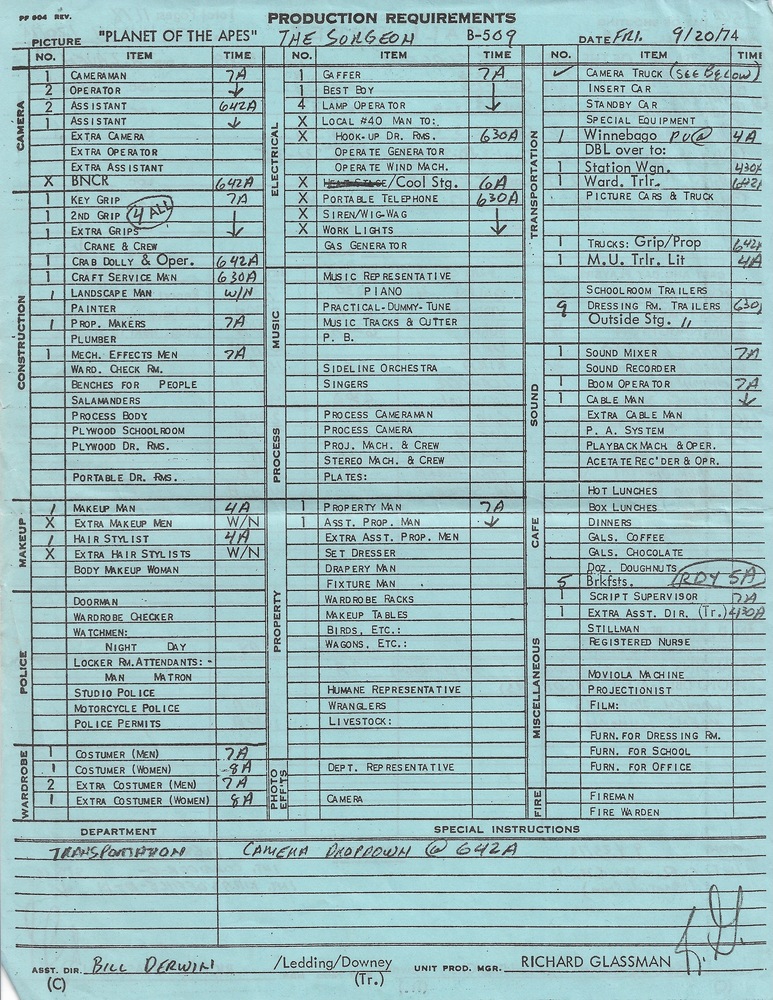 PF 804 REV.
PRODUCTION REQUIREMENTS
PICTURE "PLANET OF THE APES" THE SURGEON B-509 DATE FRI. 9/20/74
NO. ITEM TIME
CAMERA
1 CAMERAMAN 7A
2 OPERATOR ↓
2 ASSISTANT 642A
1 ASSISTANT ↓
EXTRA CAMERA
EXTRA OPERATOR
EXTRA ASSISTANT
X BNCR 642A
CONSTRUCTION
1 KEY GRIP 7A
1 2ND GRIP 4 ALL
1 EXTRA GRIPS ↓
CRANE & CREW
1 CRAB DOLLY & Oper. 642A
1 CRAFT SERVICE MAN 630A
1 LANDSCAPE MAN W/N
PAINTER
1 PROP. MAKERS 7A
PLUMBER
1 MECH. EFFECTS MEN 7A
WARD. CHECK RM.
BENCHES FOR PEOPLE
SALAMANDERS
PROCESS BODY
PLYWOOD SCHOOLROOM
PLYWOOD DR. RMS.
PORTABLE DR. RMS.
MAKEUP
1 MAKEUP MAN 4A
X EXTRA MAKEUP MEN W/N
1 HAIR STYLIST 4A
X EXTRA HAIR STYLISTS W/N
BODY MAKEUP WOMAN
POLICE
DOORMAN
WARDROBE CHECKER
WATCHMEN:
NIGHT DAY
LOCKER RM. ATTENDANTS: -
MAN MATRON
STUDIO POLICE
MOTORCYCLE POLICE
POLICE PERMITS
WARDROBE
1 COSTUMER (MEN) 7A
1 COSTUMER (WOMEN) 8A
2 EXTRA COSTUMER (MEN) 7A
1 EXTRA COSTUMER (WOMEN) 8A
NO. ITEM TIME
ELECTRICAL
1 GAFFER 7A
1 BEST BOY
4 LAMP OPERATOR ↓
X LOCAL #40 MAN TO:
X HOOK-UP DR. RMS. 630A
OPERATE GENERATOR
OPERATE WIND MACH.
X /Cool Stg. 6A
X PORTABLE TELEPHONE 630A
X SIREN/WIG-WAG
X WORK LIGHTS ↓
GAS GENERATOR
MUSIC
MUSIC REPRESENTATIVE
PIANO
PRACTICAL-DUMMY-TUNE
MUSIC TRACKS & CUTTER
P. B.
SIDELINE ORCHESTRA
SINGERS
PROCESS
PROCESS CAMERAMAN
PROCESS CAMERA
PROJ. MACH. & CREW
STEREO MACH. & CREW
PLATES:
PROPERTY
1 PROPERTY MAN 7A
1 ASST. PROP. MAN ↓
EXTRA ASST. PROP. MEN
SET DRESSER
DRAPERY MAN
FIXTURE MAN
WARDROBE RACKS
MAKEUP TABLES
BIRDS, ETC.:
WAGONS, ETC.:
HUMANE REPRESENTATIVE
WRANGLERS
LIVESTOCK:
PHOTO EFF'TS
DEPT. REPRESENTATIVE
CAMERA
NO. ITEM TIME
TRANSPORTATION
✓ CAMERA TRUCK (SEE BELOW)
INSERT CAR
STANDBY CAR
SPECIAL EQUIPMENT
1 Winnebago PU@ 4A
DBL over to:
1 Station Wgn. 430A
1 Ward. Trlr. 642A
PICTURE CARS & TRUCK
1 TRUCKS: Grip/Prop 642A
1 M.U. Trlr. Lit 4A
SCHOOLROOM TRAILERS
9 DRESSING RM. TRAILERS 630A
Outside Stg. 11
SOUND
1 SOUND MIXER 7A
SOUND RECORDER
1 BOOM OPERATOR 7A
1 CABLE MAN ↓
EXTRA CABLE MAN
P. A. SYSTEM
PLAYBACK MACH. & OPER.
ACETATE REC'DER & OPR.
CAFE
HOT LUNCHES
BOX LUNCHES
DINNERS
GALS. COFFEE
GALS. CHOCOLATE
DOZ. DOUGHNUTS
5 Brkfsts. RDY 5A
MISCELLANEOUS
1 SCRIPT SUPERVISOR 7A
1 EXTRA ASST. DIR. (Tr.) 430A
STILLMAN
REGISTERED NURSE
MOVIOLA MACHINE
PROJECTIONIST
FILM:
FURN. FOR DRESSING RM.
FURN. FOR SCHOOL
FURN. FOR OFFICE
FIRE
FIREMAN
FIRE WARDEN
DEPARTMENT SPECIAL INSTRUCTIONS
TRANSPORTATION CAMERA DROPDOWN @ 642A
ASST. DIR. BILL DERWIN /Ledding/Downey UNIT PROD. MGR. RICHARD GLASSMAN
(C) (Tr.)